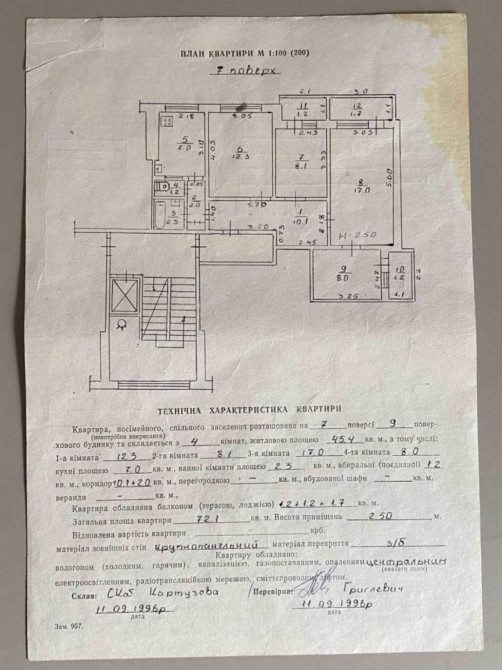 ПЛАН КВАРТИРИ М 1:100 (200)
7 поверх
2.1
3.0
11
1.2
12
1.7
1.1
2.18
3.05
2.43
3.03
5
7.0
3.10
4.03
6
12.3
7
8.1
3.33
8
17.0
5.60
4
1.2
2
2.0
3
2.3
1.40
5.70
1
10.1
2.18
3.20
0.73
2.45
H=2.50
9
8.0
2.47
10
1.2
2.2
3.25
1.1
ТЕХНІЧНА ХАРАКТЕРИСТИКА КВАРТИРИ
Квартира, посімейного, спільного заселення розташована на 7 поверсі 9 повер-
(непотрібне викреслити)
хового будинку та складається з 4 кімнат, житловою площею 45.4 кв. м., в тому числі:
1-а кімната 12.3 2-га кімната 8.1 3-я кімната 17.0 4-та кімната 8.0
кухні площею 7.0 кв. м., ванної кімнати площею 2.3 кв. м., вбиральні (поєднаної) 1.2
кв. м., коридор 10.1+2.0 кв. м., перегородкою — кв. м., вбудованої шафи — кв. м.,
веранди — кв. м.,
Квартира обладнана балконом (терасою, лоджією) 1.2+1.2+1.7 кв. м.
Загальна площа квартири 72.1 кв. м. Висота приміщень 2.50 м.
Відновлена вартість квартири крб.
матеріал зовнішніх стін крупнопанельний матеріал перекриття з/б
Квартиру обладнано:
водогоном (холодним, гарячим), каналізацією, газопостачанням, опаленням центральним
(вказати яким)
електроосвітленням, радіотрансляційною мережею, сміттєпроводом, ліфтом.
Склав: Скоб Картузова Перевірив: Григлевич
11.09.1996р 11.09.1996р
дата дата
Зам. 957.